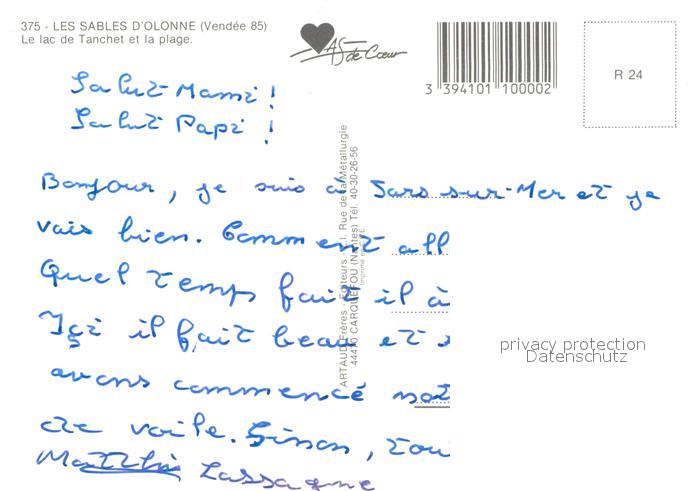 375 - LES SABLES D'OLONNE (Vendée 85)
Le lac de Tanchet et la plage.
AS de Cœur
3 394101 100002
R 24
Salut Mami !
Salut Papi !
Bonjour, je suis à Jars-sur-Mer et je
vais bien. Comment all
Quel temps fait il à
Içi il fait beau et
avons commencé not
de voile. Sinon, tou
Matthie Lassagne
ARTAUD Frères - Éditeurs - Rue de la Métallurgie
44470 CARQUEFOU (Nantes) Tél. 40-30-26-56
privacy protection
Datenschutz